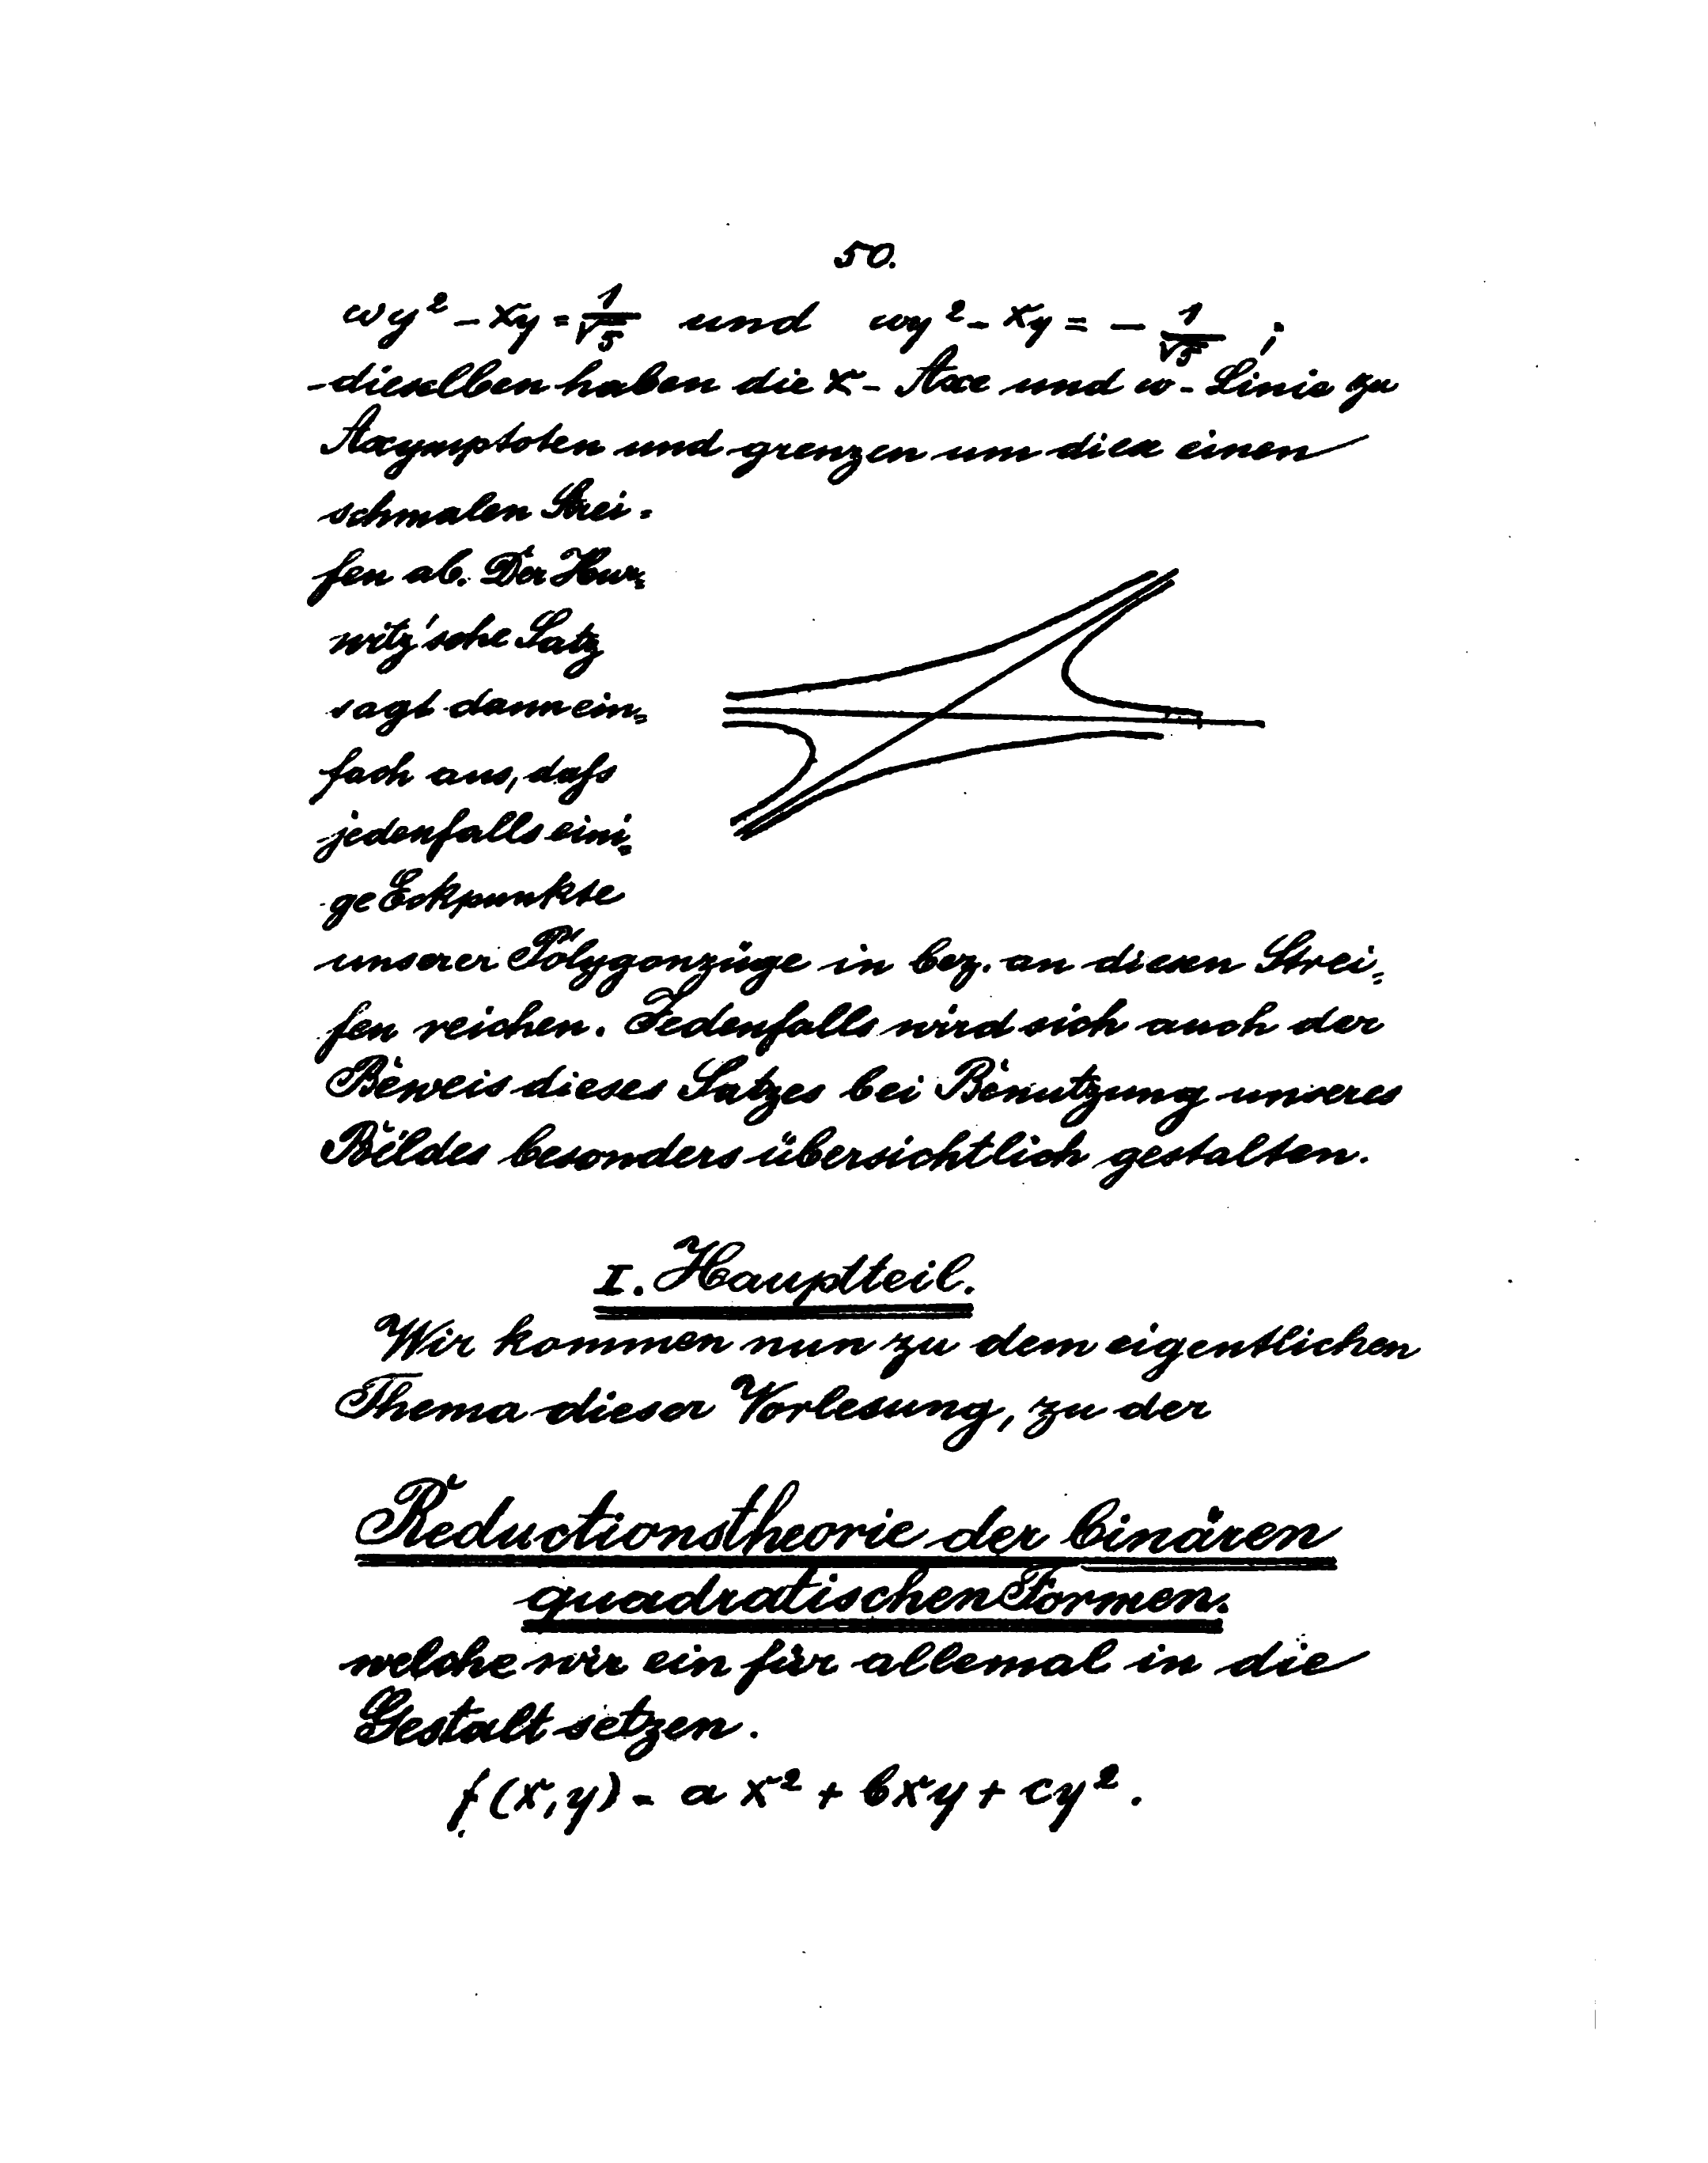 50.
ωy² - xy = 1/√5 und ωy² - xy = - 1/√5 ;
dieselben haben die x - Axe und ω - Linie zu
Asymptoten und grenzen um diese einen
schmalen Strei-
fen ab. Der Hur-
witz'sche Satz
sagt dann ein-
fach aus, dafs
jedenfalls eini-
ge Eckpunkte
unserer Polygonzüge in bez. an diesen Strei-
fen reichen. Jedenfalls wird sich auch der
Beweis dieses Satzes bei Benutzung unseres
Bildes besonders übersichtlich gestalten.
I. Hauptteil.
Wir kommen nun zu dem eigentlichen
Thema dieser Vorlesung, zu der
Reductionstheorie der binären
quadratischen Formen.
welche wir ein für allemal in die
Gestalt setzen.
f(x,y) = a x² + bxy + cy².